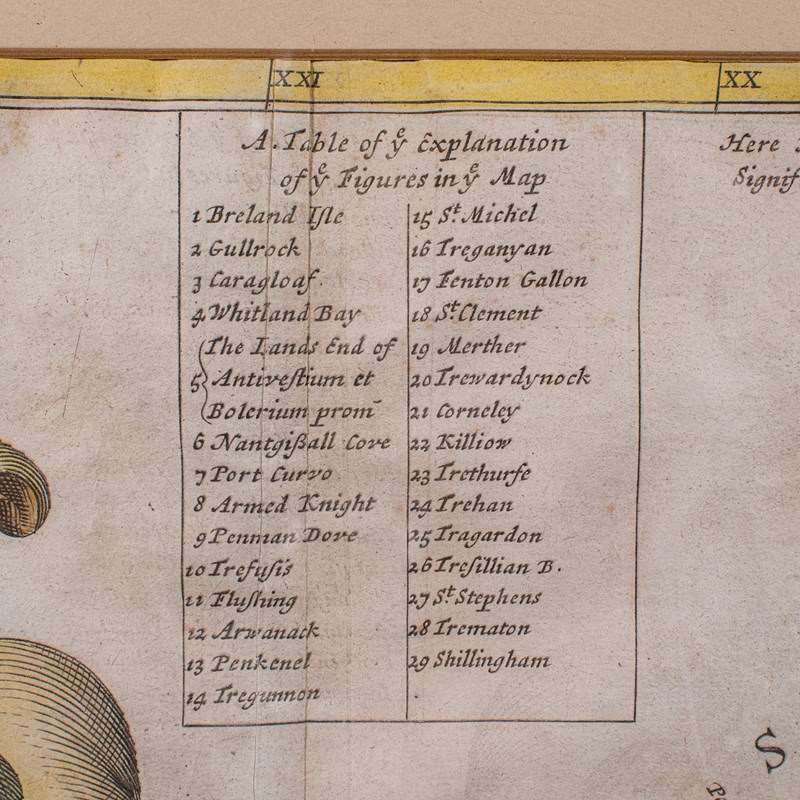 XXI
XX
A. Table of yᵉ Explanation
of yᵉ Figures in yᵉ Map
1 Breland Iſle
2 Gullrock
3 Caragloaf.
4 Whitland Bay
5 The Lands End of
Antiveſtium et
Bolerium prom̄
6 Nantgißall Cove
7 Port Curvo
8 Armed Knight
9 Penman Dove
10 Trefuſis
11 Fluſhing
12 Arwanack
13 Penkenel
14 Tregunnon
15 Sᵗ. Michel
16 Treganyan
17 Fenton Gallon
18 Sᵗ. Clement
19 Merther
20 Trewardynock
21 Corneley
22 Killiow
23 Trethurfe
24 Trehan
25 Tragardon
26 Treſillian B.
27 Sᵗ. Stephens
28 Trematon
29 Shillingham
Here
Signif
S